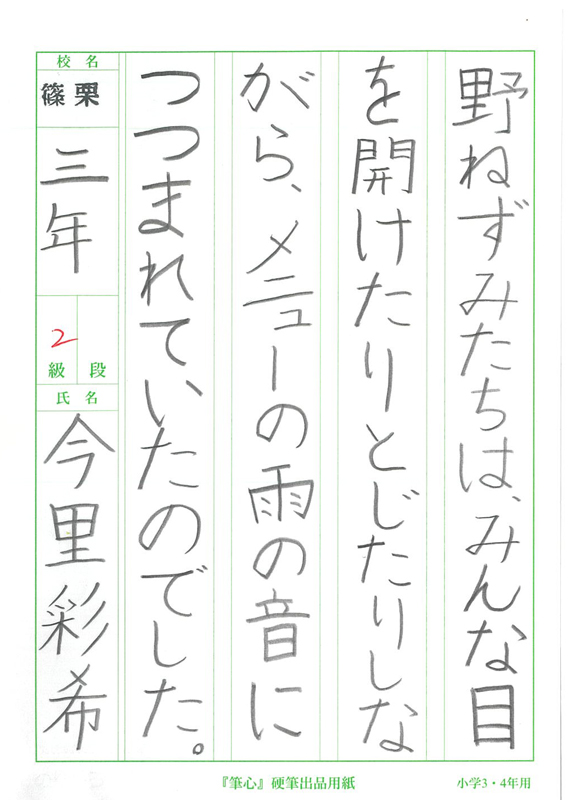 野ねずみたちは、みんな目
を開けたりとじたりしな
がら、メニューの雨の音に
つつまれていたのでした。
校名
篠栗
三年
2
級 段
氏名
今里彩希
『筆心』硬筆出品用紙
小学3・4年用